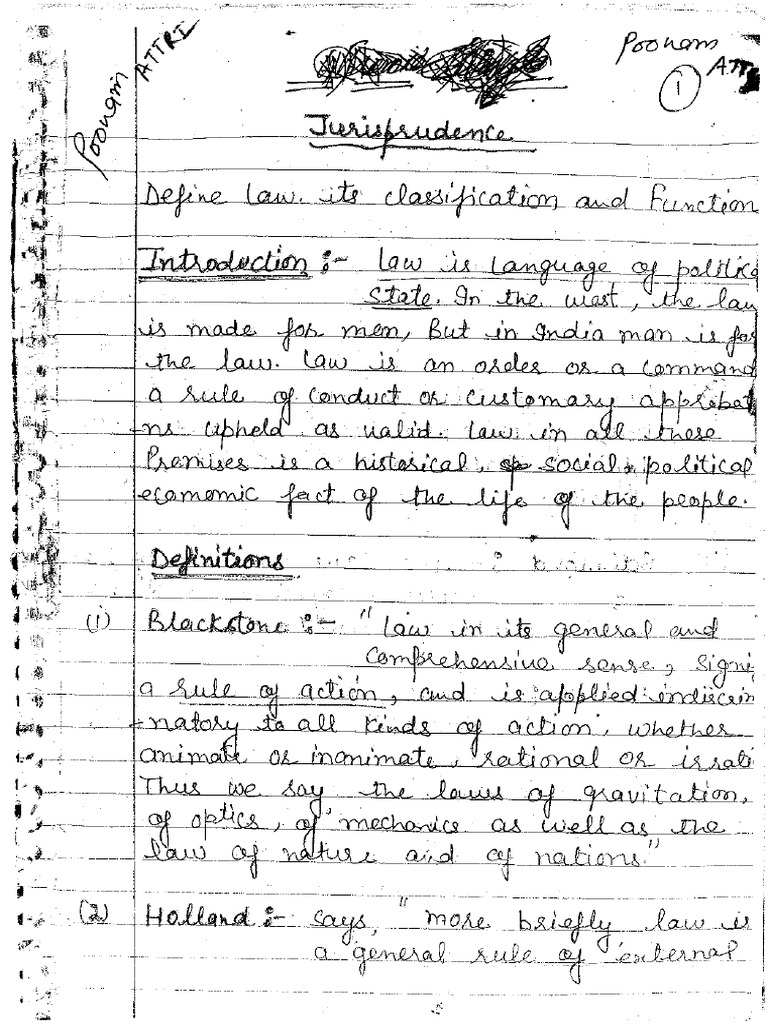 Poonam ATTRI
Poonam
ATT
1
Jurisprudence
Define Law. its classification and Function
Introduction :- Law is Language of politic
State. In the west, the law
is made for men, But in India man is for
the law. Law is an order or a command
a rule of conduct or customary approbat
ns upheld as valid. Law in all these
Premises is a historical, social, political
economic fact of the life of the people.
Definitions
(1) Blackstone :- "Law in its general and
comprehensive sense, signi
a rule of action, and is applied indiscrim
-natory to all kinds of action, whether
animate or inanimate, rational or irrati
Thus we say the laws of gravitation,
of optics, of mechanics as well as the
law of nature and of nations."
(2) Holland :- says, "more briefly law is
a general rule of external